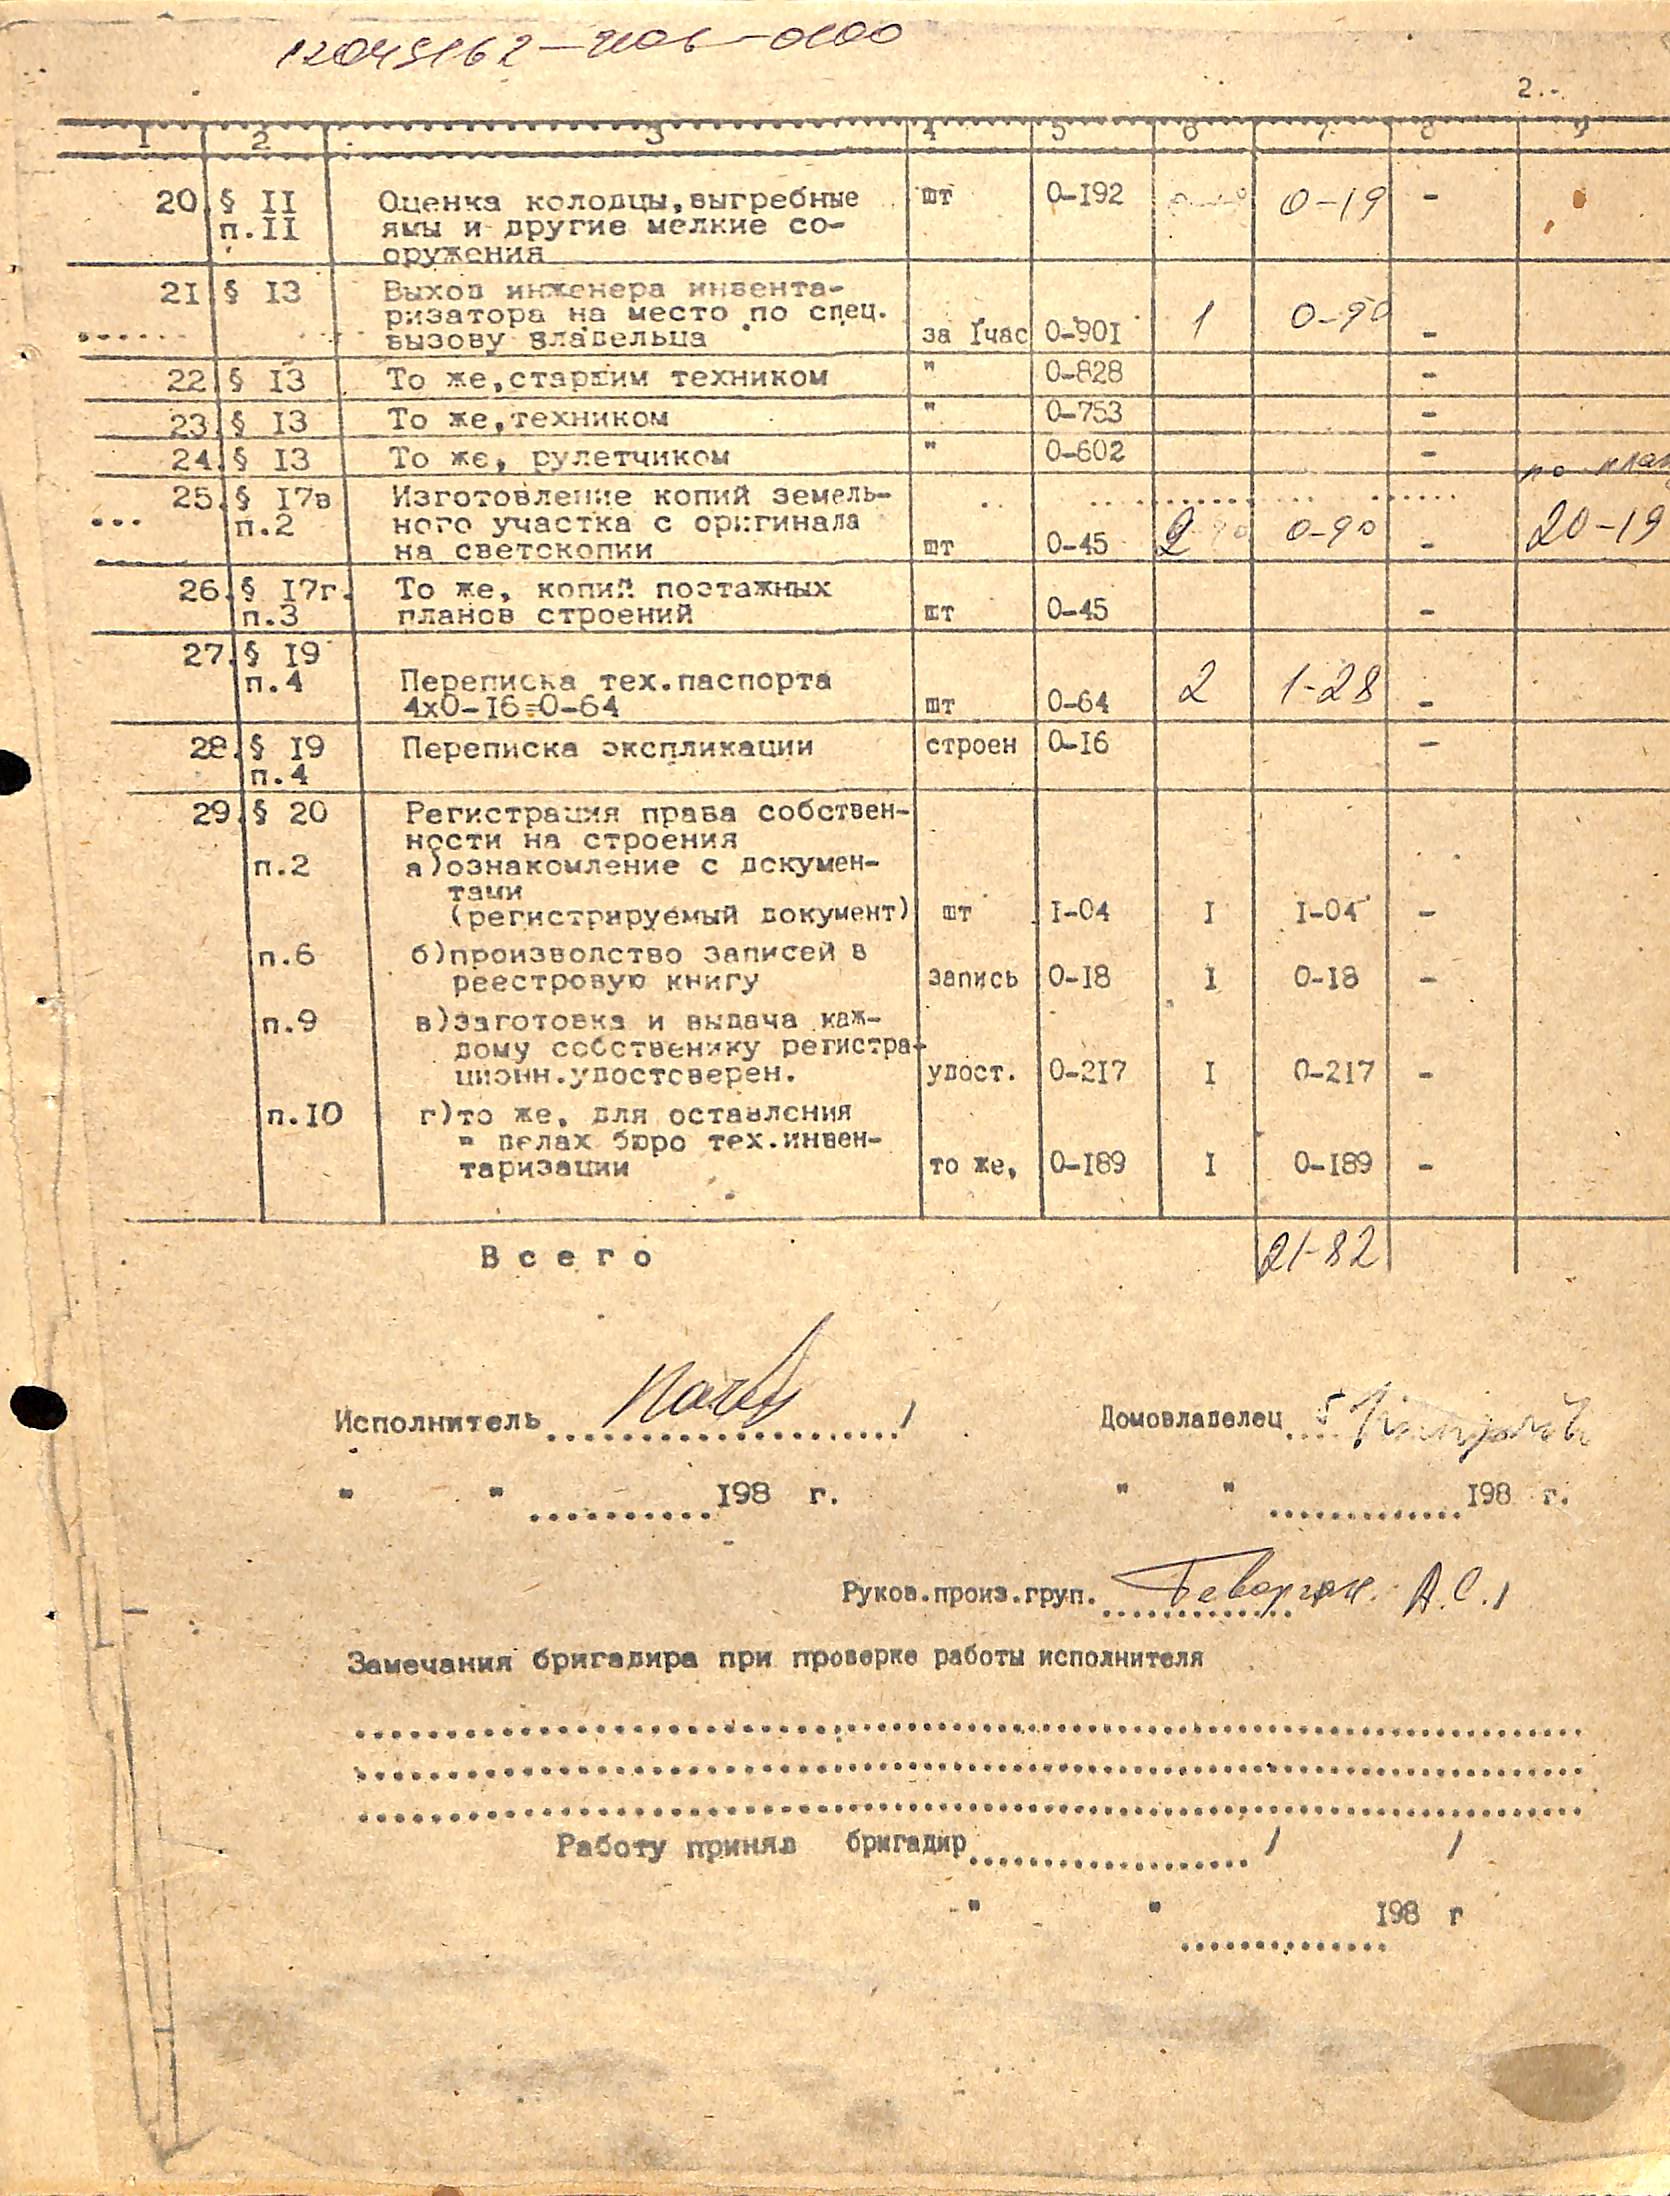 2.-
1 2 3 4 5 6 7 8 9
20. § II Оценка колодцы,выгребные шт 0-192 0-19 -
п.II ямы и другие мелкие со-
оружения
21. § 13 Выход инженера инвента-
ризатора на место по спец.
вызову владельца за 1час 0-901 1 0-90 -
22. § 13 То же,старшим техником " 0-828 -
23. § 13 То же,техником " 0-753 -
24. § 13 То же, рулетчиком " 0-602 -
по
25. § 17в Изготовление копий земель-
п.2 ного участка с оригинала
на светокопии шт 0-45 2 0-90 - 20-19
26. § 17г. То же, копий поэтажных
п.3 планов строений шт 0-45 -
27. § 19
п.4 Переписка тех.паспорта
4х0-16=0-64 шт 0-64 2 1-28 -
28. § 19 Переписка экспликации строен 0-16 -
п.4
29. § 20 Регистрация права собствен-
ности на строения
п.2 а)ознакомление с докумен-
тами
(регистрируемый документ) шт I-04 I I-04 -
п.6 б)производство записей в
реестровую книгу запись 0-18 I 0-18 -
п.9 в)заготовка и выдача каж-
дому собственику регистра-
ционн.удостоверен. удост. 0-217 I 0-217 -
п.10 г)то же, для оставления
в делах бюро тех.инвен-
таризации то же, 0-189 I 0-189 -
Всего 21-82
Исполнитель / Домовладелец
" " 198 г. " " 198 г.
Руков.произ.груп. Геворгян. А.С./
Замечания бригадира при проверке работы исполнителя
Работу принял бригадир / /
" " 198 г